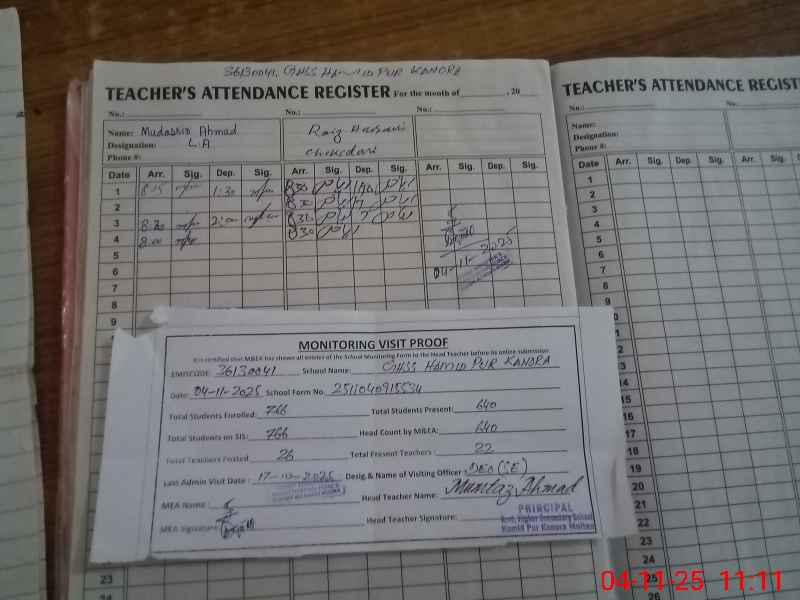 36130041, GHSS HAMID PUR KANORA
TEACHER'S ATTENDANCE REGISTER For the month of , 20
No.: No.: No.:
Name: Mudassir Ahmad
Designation: L.A
Phone #:
Date Arr. Sig. Dep. Sig. Arr. Sig. Dep. Sig. Arr. Sig. Dep. Sig.
1 8:15 1:30 830
2 830
3 8:30 2:00 830
4 8:00 830
5
6 04-11-2025
7
8
9
TEACHER'S ATTENDANCE REGISTER
No.:
Name:
Designation:
Phone #:
Date Arr. Sig. Dep. Sig. Arr. Sig.
1
2
3
4
5
6
7
8
9
MONITORING VISIT PROOF
It is certified that MEA has shown all entries of the School Monitoring Form to the Head Teacher before its online submission
EMIS CODE: 36130041 School Name: GHSS HAMID PUR KANORA
Date: 04-11-2025 School Form No.
Total Students Enrolled: 766 Total Students Present: 640
Total Students on SIS: 766 Head Count by MEA: 640
Total Teachers Posted: 26 Total Present Teachers: 22
Last Admin Visit Date: 17-10-2025 Desig & Name of Visiting Officer: DEO (SE)
MEA Name: Head Teacher Name: Mumtaz Ahmad
MEA Signature: Head Teacher Signature:
PRINCIPAL
Govt. Higher Secondary School
Hamid Pur Kanora Multan
15
16
17
18
19
20
21
22
23
24
25
26
23
04-11-25 11:11